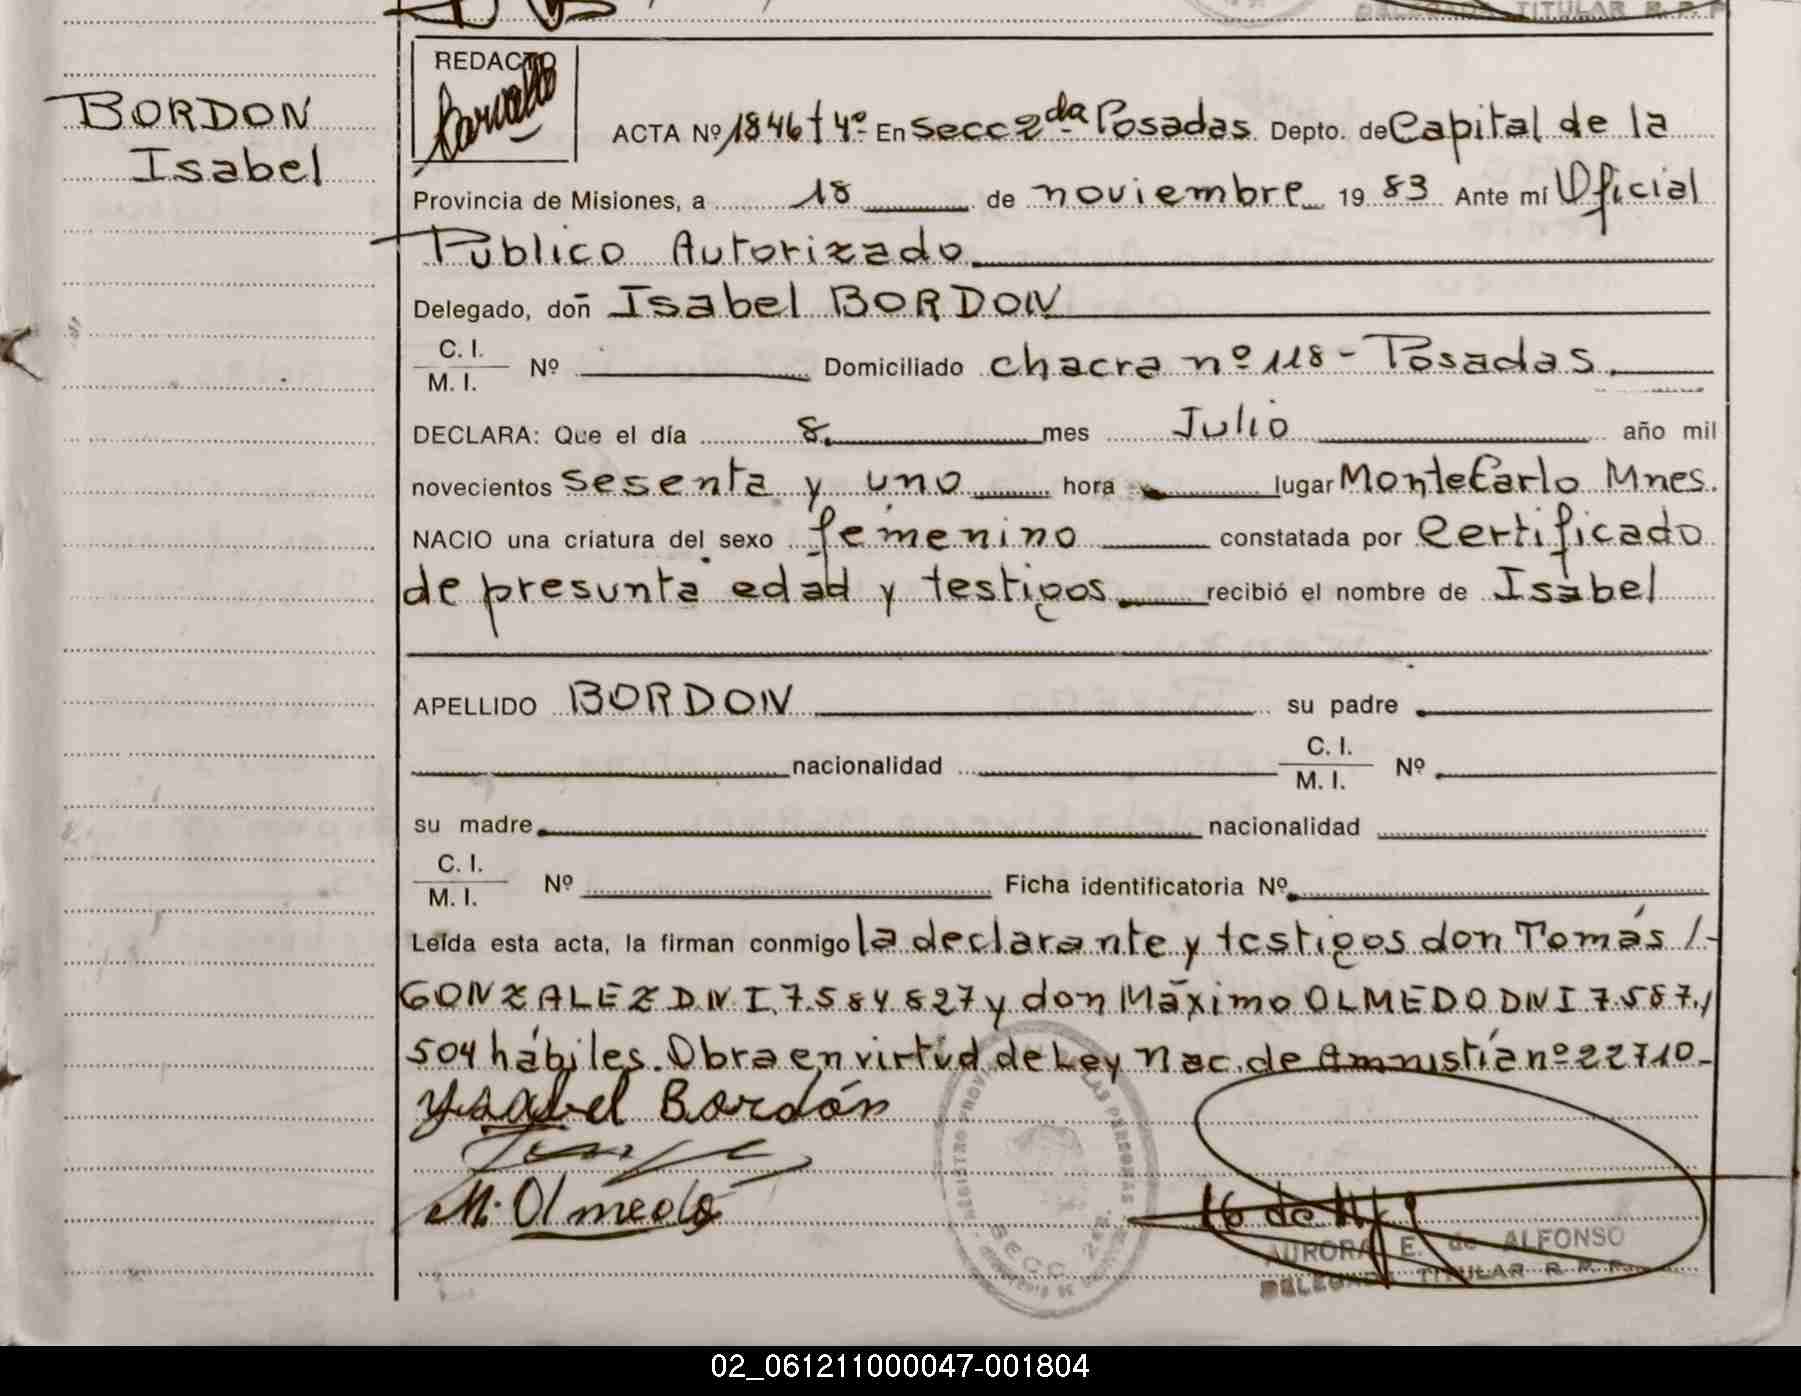 DELEGADA TITULAR R. P. P.
BORDON
Isabel
REDACTO
ACTA Nº 1846 tº 4º En Secc 2da Posadas Depto. de Capital de la
Provincia de Misiones, a 18 de noviembre 19 83 Ante mí Oficial
Público Autorizado
Delegado, doñ Isabel BORDON
C. I.
M. I. Nº Domiciliado chacra nº 118 - Posadas.
DECLARA: Que el día 8 mes Julio año mil
novecientos sesenta y uno hora lugar MonteCarlo Mnes.
NACIO una criatura del sexo femenino constatada por Certificado
de presunta edad y testigos recibió el nombre de Isabel
APELLIDO BORDON su padre
nacionalidad C. I.
M. I. Nº
su madre nacionalidad
C. I.
M. I. Nº Ficha identificatoria Nº
Leída esta acta, la firman conmigo la declarante y testigos don Tomás /-
GONZALEZ D.N.I. 7.584.827 y don Máximo OLMEDO DNI 7.587./
504 hábiles. Obra en virtud de Ley Nac. de Amnistía nº 22710-
Ysabel Bordón
M. Olmedo
REGISTRO PROVINCIAL DE LAS PERSONAS
SECC 2da.
AURORA E. de ALFONSO
DELEGADA TITULAR R. P. P.
02_061211000047-001804